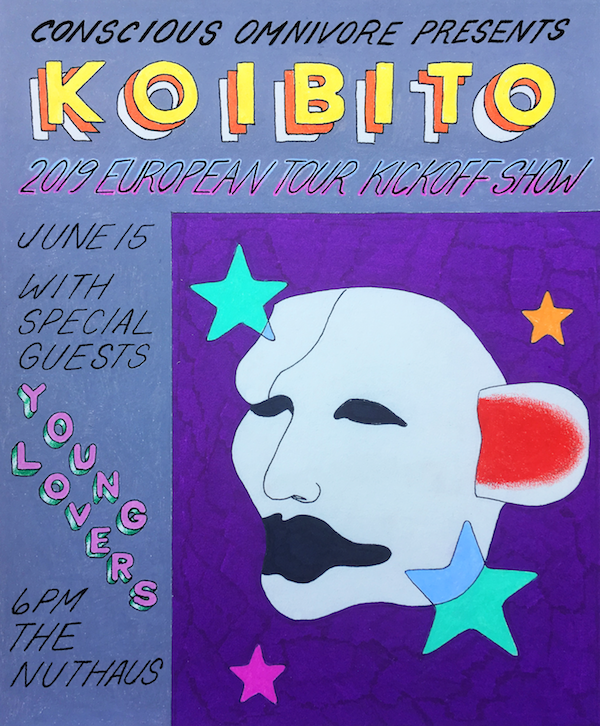 CONSCIOUS OMNIVORE PRESENTS
KOIBITO
2019 EUROPEAN TOUR KICKOFF SHOW
JUNE 15
WITH
SPECIAL
GUESTS
YOUNG
LOVERS
6PM
THE
NUTHAUS